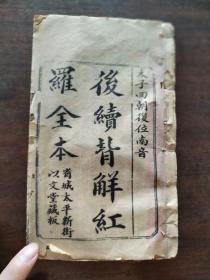 太子回朝復位南音
後續背解紅
羅全本
省城太平新街
以文堂藏板